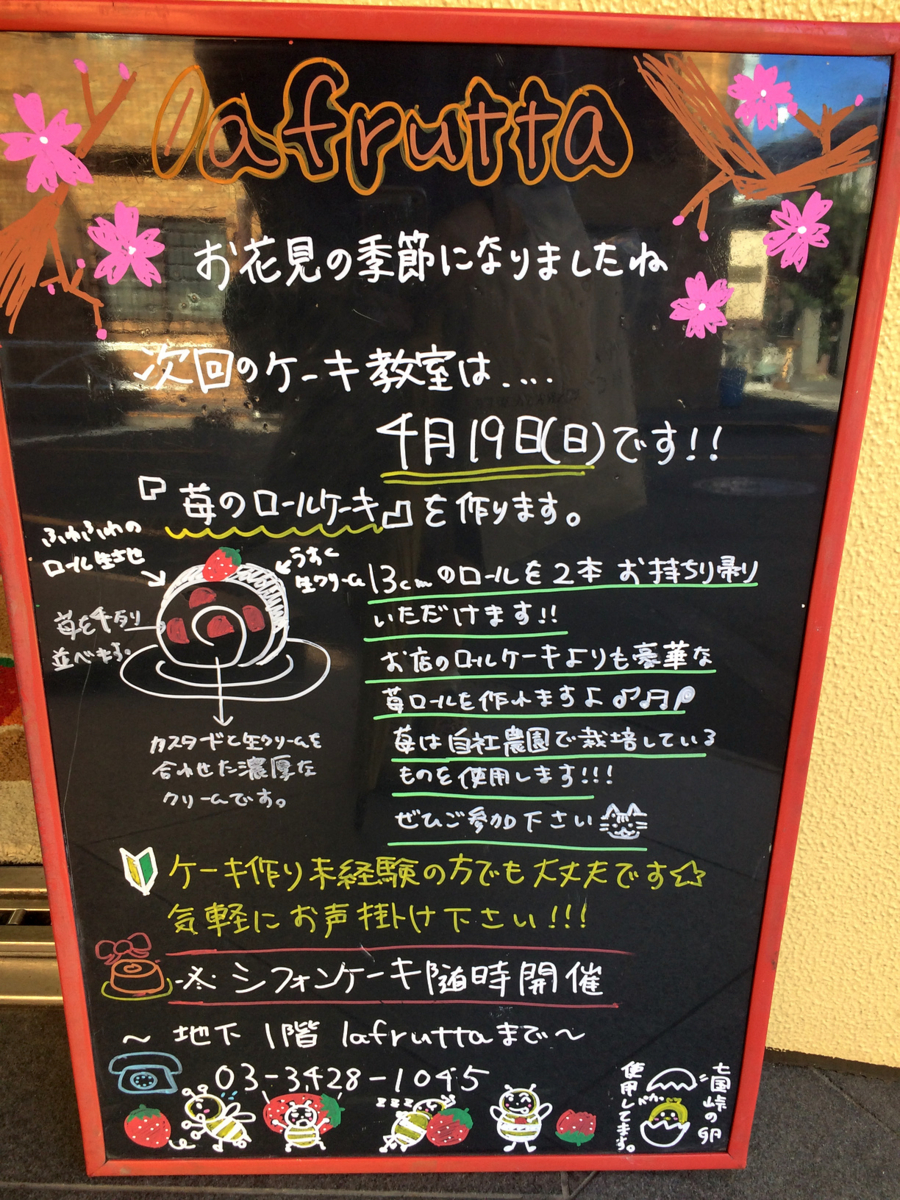 lafrutta
お花見の季節になりましたね
次回のケーキ教室は....
4月19日(日)です!!
『苺のロールケーキ』を作ります。
ふわふわの
ロール生地
うすく
生クリーム
苺を4列
並べます。
カスタードと生クリームを
合わせた濃厚な
クリームです。
13cmのロールを2本 お持ち帰り
いただけます!!
お店のロールケーキよりも豪華な
苺ロールを作れますよ♪♬
苺は自社農園で栽培している
ものを使用します!!!
ぜひご参加下さい
ケーキ作り未経験の方でも大丈夫です☆
気軽にお声掛け下さい!!!
シフォンケーキ随時開催
〜 地下 1階 lafruttaまで〜
03-3428-1045
七国峠の卵
使用してます。
zzz